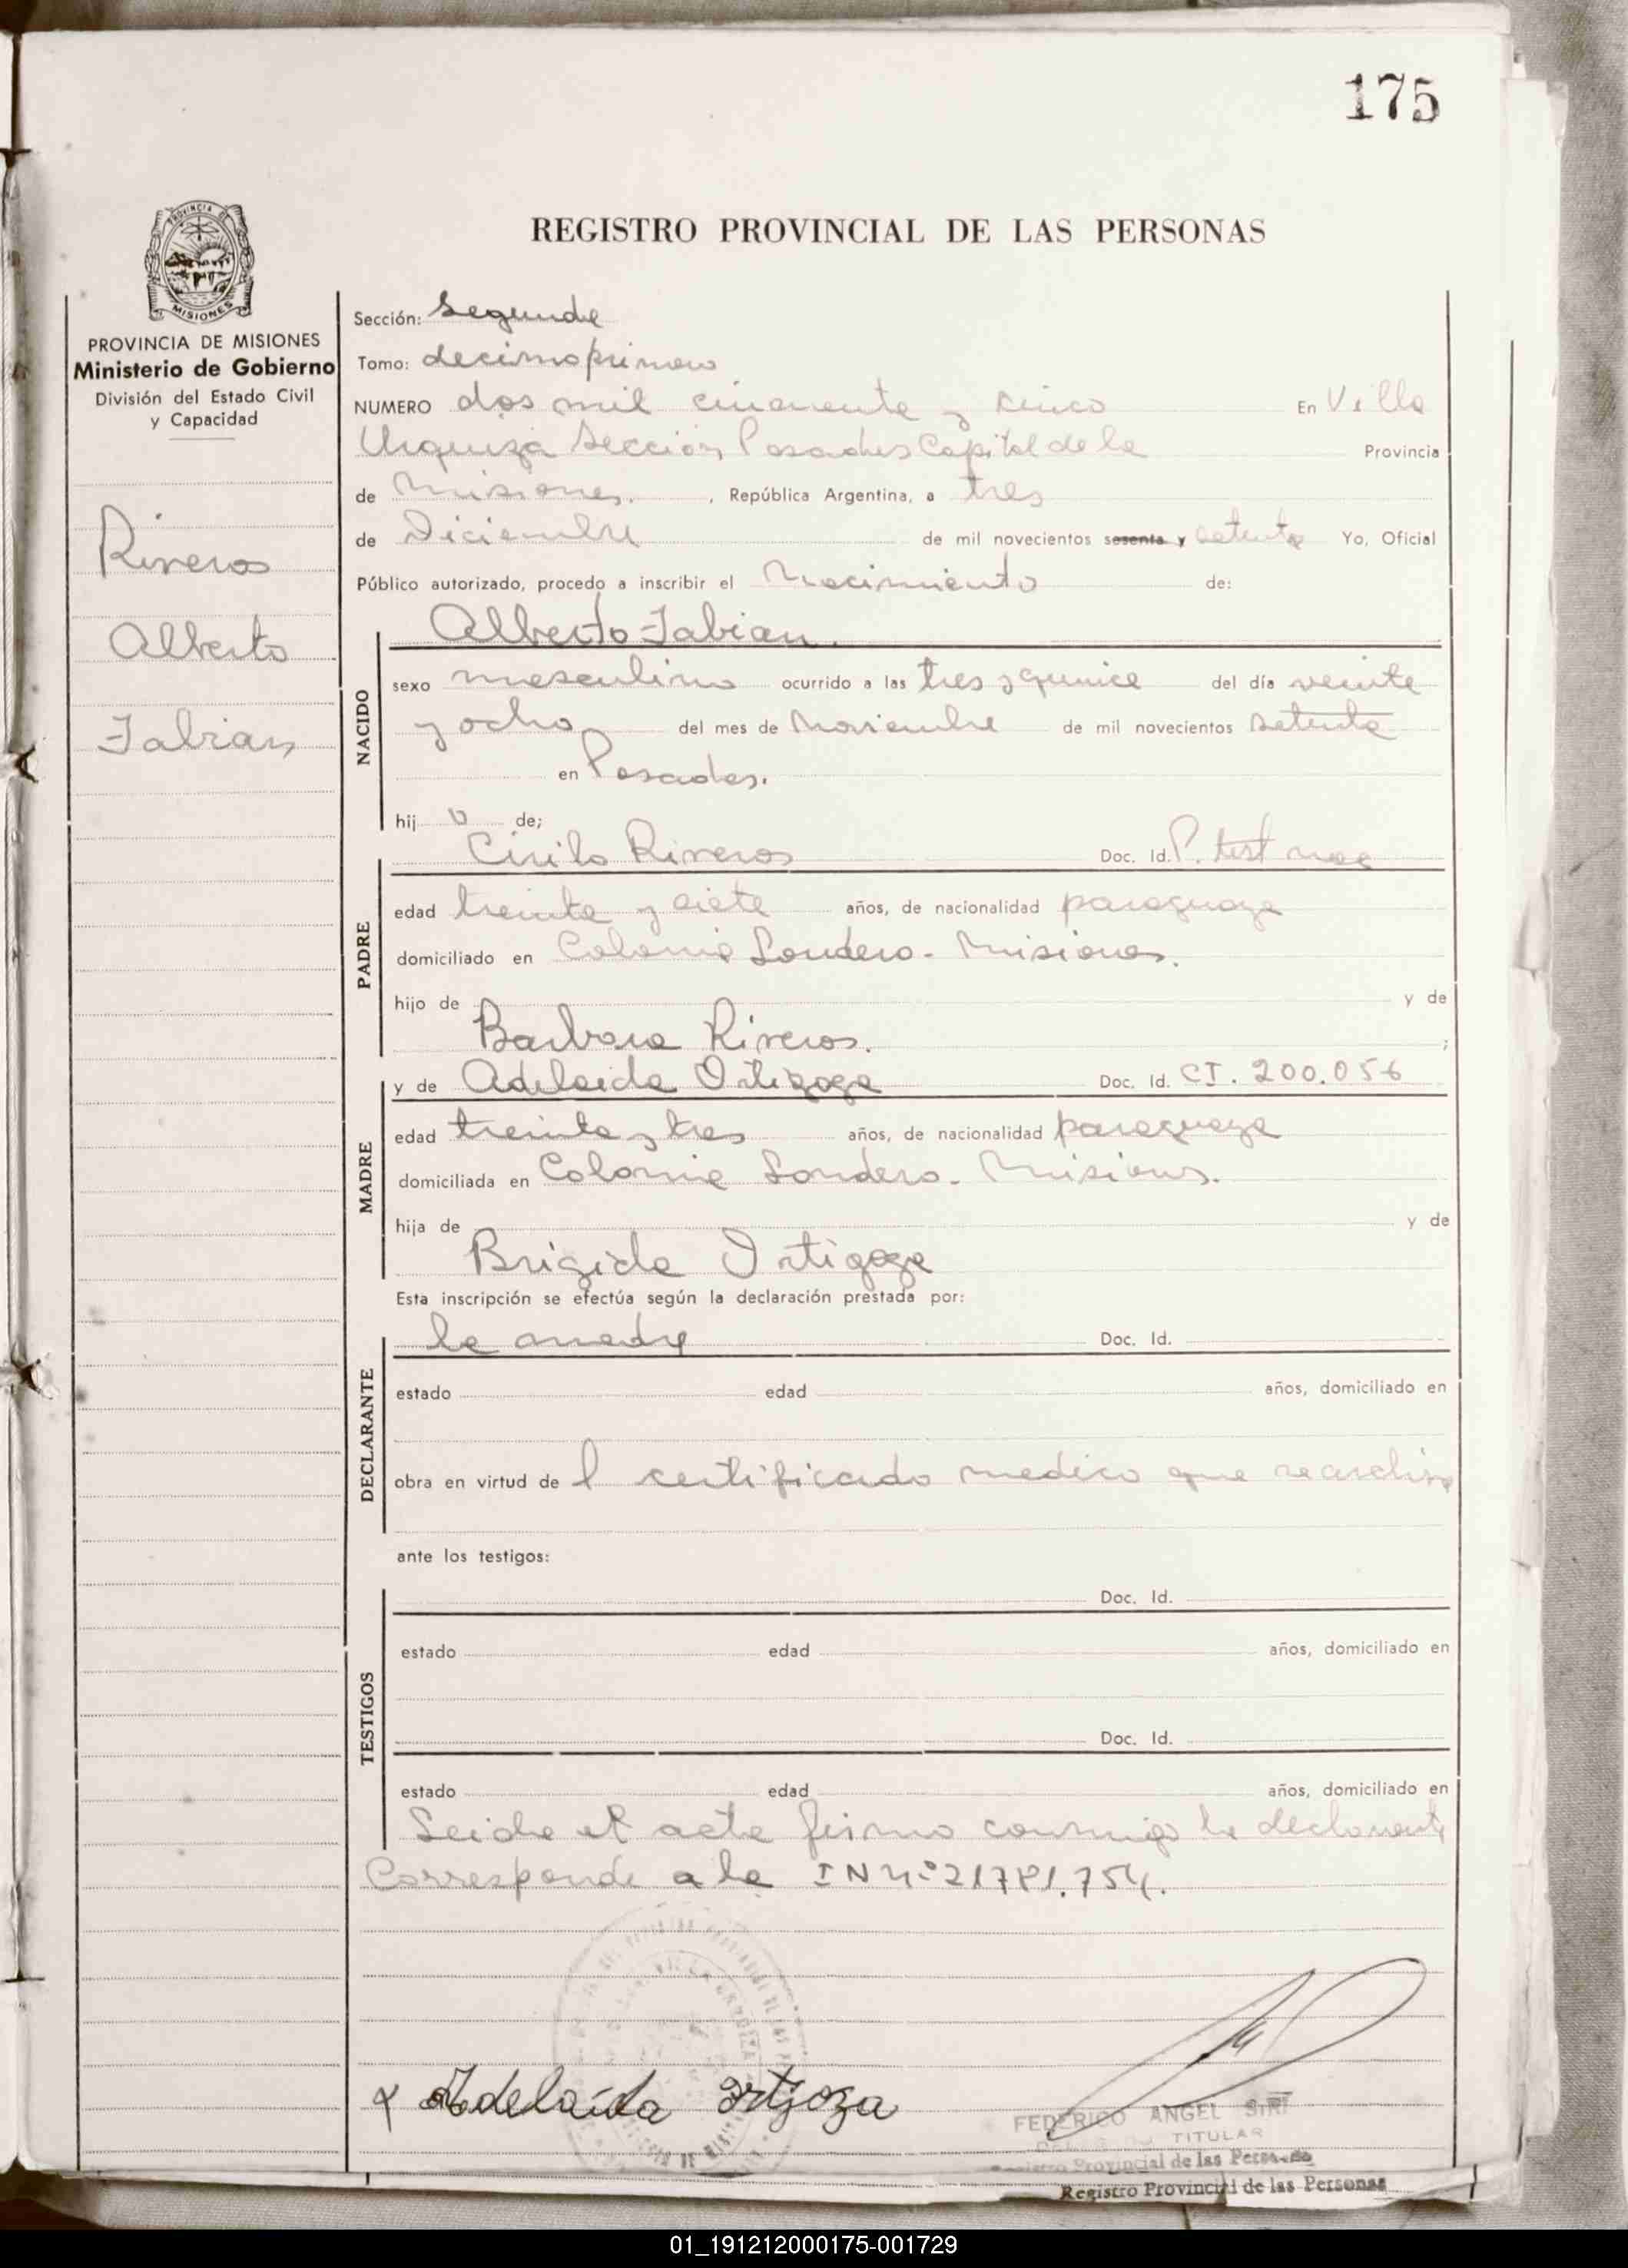 175
REGISTRO PROVINCIAL DE LAS PERSONAS
PROVINCIA DE MISIONES
MISIONES
PROVINCIA DE MISIONES
Ministerio de Gobierno
División del Estado Civil
y Capacidad
Riveros
Alberto
Fabian
Sección: Segunda
Tomo: decimoprimero
NUMERO dos mil cincuenta y cinco En Villa
Urquiza Sección Posadas Capital de la Provincia
de Misiones. , República Argentina, a tres
de Diciembre de mil novecientos sesenta y setenta Yo, Oficial
Público autorizado, procedo a inscribir el Nacimiento de:
Alberto Fabian.
NACIDO
sexo masculino ocurrido a las tres y quince del día veinte
y ocho del mes de Noviembre de mil novecientos setenta
en Posadas.
hij o de;
Cirilo Riveros Doc. Id. P. test nac
PADRE
edad treinta y siete años, de nacionalidad paraguaya
domiciliado en Colonia Londero - Misiones.
hijo de y de
Barbara Riveros. ;
MADRE
y de Adelaida Ortigoza Doc. Id. CI. 200.056
edad treinta y tres años, de nacionalidad paraguaya
domiciliada en Colonia Londero - Misiones.
hija de y de
Brigida Ortigoza
Esta inscripción se efectúa según la declaración prestada por:
DECLARANTE
la madre Doc. Id.
estado edad años, domiciliado en
obra en virtud de l certificado medico que se archiva
ante los testigos:
TESTIGOS
Doc. Id.
estado edad años, domiciliado en
Doc. Id.
estado edad años, domiciliado en
Leida el acta firma conmigo la declarante
Corresponde a la IN nº 21781.754.
Adelaida Ortigoza
FEDERICO ANGEL SIRI
TITULAR
Registro Provincial de las Personas
Registro Provincial de las Personas
01_191212000175-001729